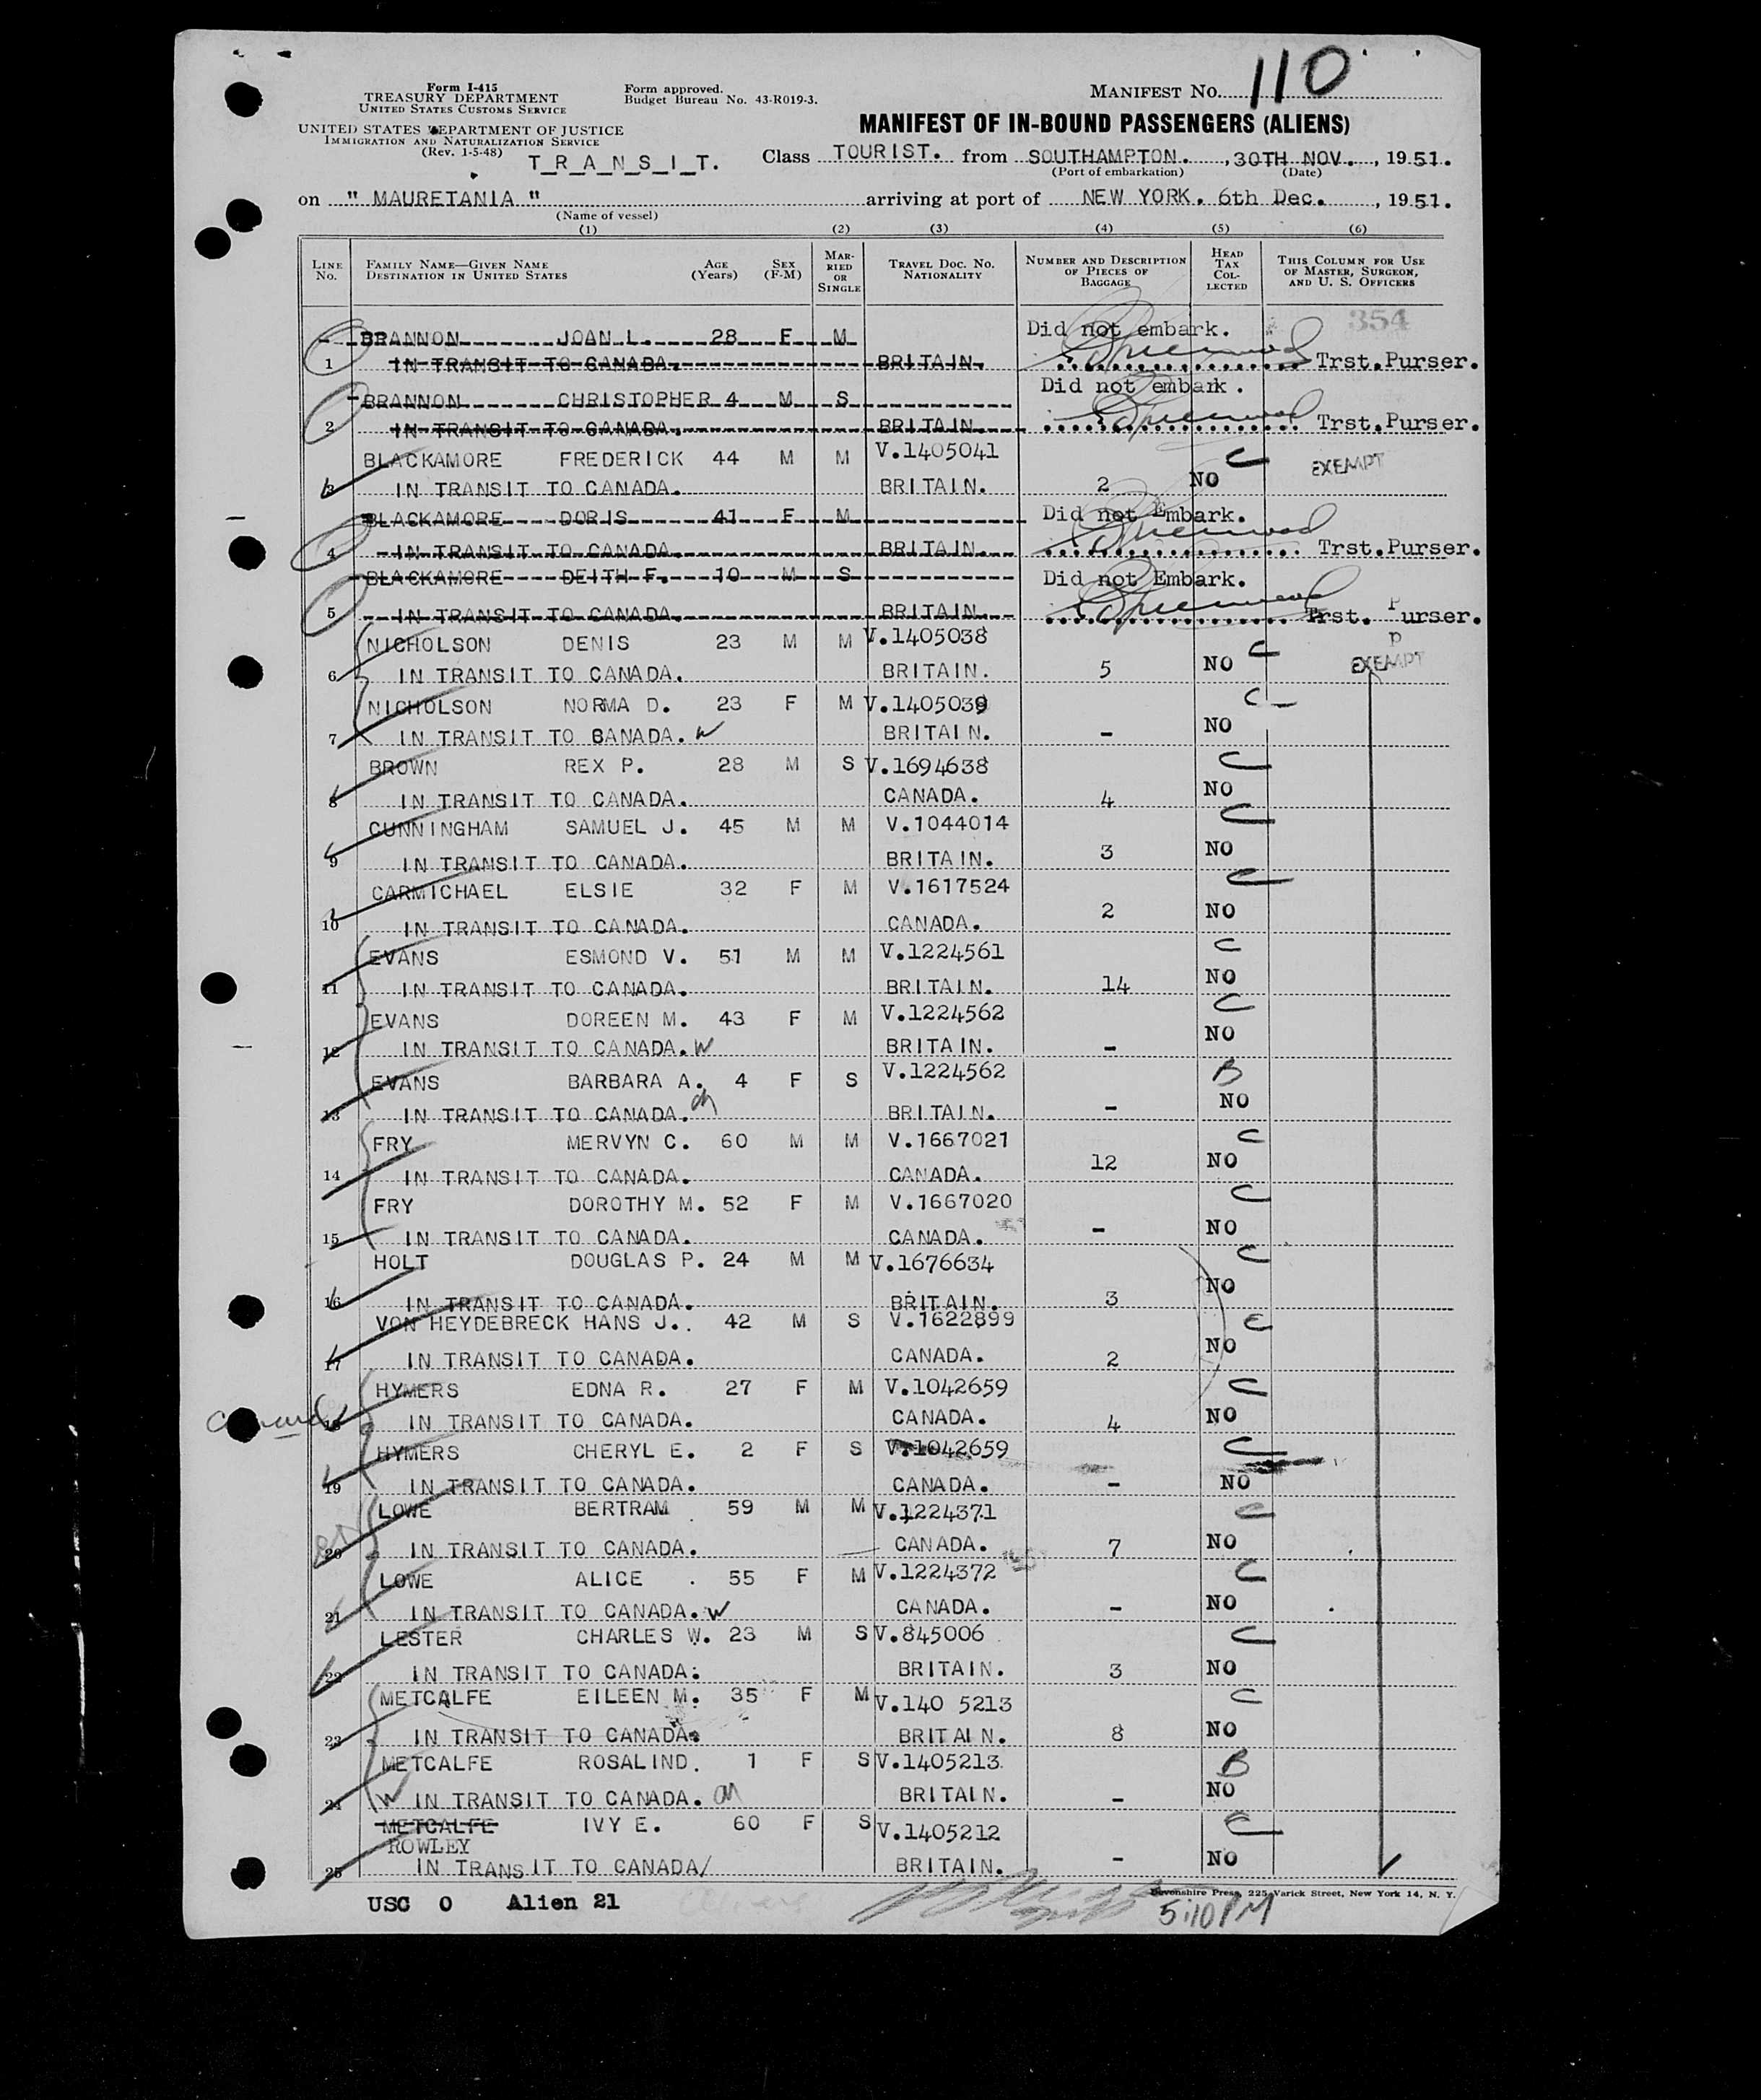 110
Form I-415
TREASURY DEPARTMENT
UNITED STATES CUSTOMS SERVICE
Form approved.
Budget Bureau No. 43-R019-3.
MANIFEST NO.
UNITED STATES DEPARTMENT OF JUSTICE
IMMIGRATION AND NATURALIZATION SERVICE
(Rev. 1-5-48)
MANIFEST OF IN-BOUND PASSENGERS (ALIENS)
T_R_A_N_S_I_T.
Class TOURIST. from SOUTHAMPTON. , 30TH NOV. , 1951.
(Port of embarkation) (Date)
on " MAURETANIA " arriving at port of NEW YORK. 6th Dec. , 1951.
(Name of vessel)
(1) (2) (3) (4) (5) (6)
LINE No. FAMILY NAME—GIVEN NAME DESTINATION IN UNITED STATES AGE (Years) SEX (F-M) MARRIED OR SINGLE TRAVEL DOC. NO. NATIONALITY NUMBER AND DESCRIPTION OF PIECES OF BAGGAGE HEAD TAX COLLECTED THIS COLUMN FOR USE OF MASTER, SURGEON, AND U. S. OFFICERS
354
BRANNON JOAN L. 28 F M Did not embark.
1 IN TRANSIT TO CANADA. BRITAIN. Trst.Purser.
BRANNON CHRISTOPHER 4 M S Did not embark.
2 IN TRANSIT TO CANADA. BRITAIN. Trst.Purser.
BLACKAMORE FREDERICK 44 M M V.1405041 C EXEMPT
3 IN TRANSIT TO CANADA. BRITAIN. 2 NO
BLACKAMORE DORIS 41 F M Did not Embark.
4 IN TRANSIT TO CANADA BRITAIN. Trst.Purser.
BLACKAMORE DEITH F. 10 M S Did not Embark.
5 IN TRANSIT TO CANADA BRITAIN. Trst. Purser.
NICHOLSON DENIS 23 M M V.1405038 C P
6 IN TRANSIT TO CANADA. BRITAIN. 5 NO EXEMPT
NICHOLSON NORMA D. 23 F M V.1405039 C
7 IN TRANSIT TO BANADA. W BRITAIN. - NO
BROWN REX P. 28 M S V.1694638 C
8 IN TRANSIT TO CANADA. CANADA. 4 NO
CUNNINGHAM SAMUEL J. 45 M M V.1044014 C
9 IN TRANSIT TO CANADA. BRITAIN. 3 NO
CARMICHAEL ELSIE 32 F M V.1617524 C
10 IN TRANSIT TO CANADA. CANADA. 2 NO
EVANS ESMOND V. 51 M M V.1224561 C
11 IN TRANSIT TO CANADA. BRITAIN. 14 NO
EVANS DOREEN M. 43 F M V.1224562 C
12 IN TRANSIT TO CANADA. W BRITAIN. - NO
EVANS BARBARA A. 4 F S V.1224562 B
13 IN TRANSIT TO CANADA. BRITAIN. - NO
FRY MERVYN C. 60 M M V.1667021 C
14 IN TRANSIT TO CANADA. CANADA. 12 NO
FRY DOROTHY M. 52 F M V.1667020 C
15 IN TRANSIT TO CANADA. CANADA. - NO
HOLT DOUGLAS P. 24 M M V.1676634 C
16 IN TRANSIT TO CANADA. BRITAIN. 3 NO
VON HEYDEBRECK HANS J. 42 M S V.1622899 C
17 IN TRANSIT TO CANADA. CANADA. 2 NO
HYMERS EDNA R. 27 F M V.1042659 C
18 IN TRANSIT TO CANADA. CANADA. 4 NO
HYMERS CHERYL E. 2 F S V.1042659 C
19 IN TRANSIT TO CANADA. CANADA. - NO
LOWE BERTRAM 59 M M V.1224371 C
20 IN TRANSIT TO CANADA. CANADA. 7 NO
LOWE ALICE . 55 F M V.1224372 C
21 IN TRANSIT TO CANADA. W CANADA. - NO
LESTER CHARLES W. 23 M S V.845006 C
22 IN TRANSIT TO CANADA. BRITAIN. 3 NO
METCALFE EILEEN M. 35 F M V.140 5213 C
23 IN TRANSIT TO CANADA. BRITAIN. 8 NO
METCALFE ROSALIND. 1 F S V.1405213 B
24 W IN TRANSIT TO CANADA. BRITAIN. - NO
METCALFE IVY E. 60 F S V.1405212 C
ROWLEY
25 IN TRANSIT TO CANADA/ BRITAIN. - NO
Devonshire Press, 225 Varick Street, New York 14, N. Y.
USC 0 Alien 21
5:10 PM